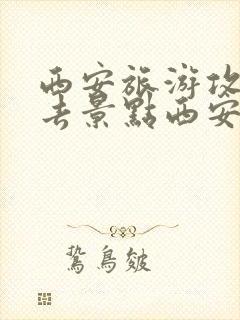 西安旅游攻
去景點西安
鷙鳥皴